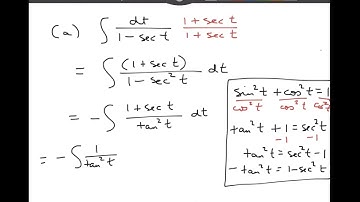 (a) ∫ dt/(1 - sec t) (1 + sec t)/(1 + sec t)
= ∫ (1 + sec t)/(1 - sec² t) dt
= - ∫ (1 + sec t)/tan² t dt
= - ∫ 1/tan² t
sin² t + cos² t = 1
cos² t cos² t cos² t
tan² t + 1 = sec² t
-1 -1
tan² t = sec² t - 1
- tan² t = 1 - sec² t